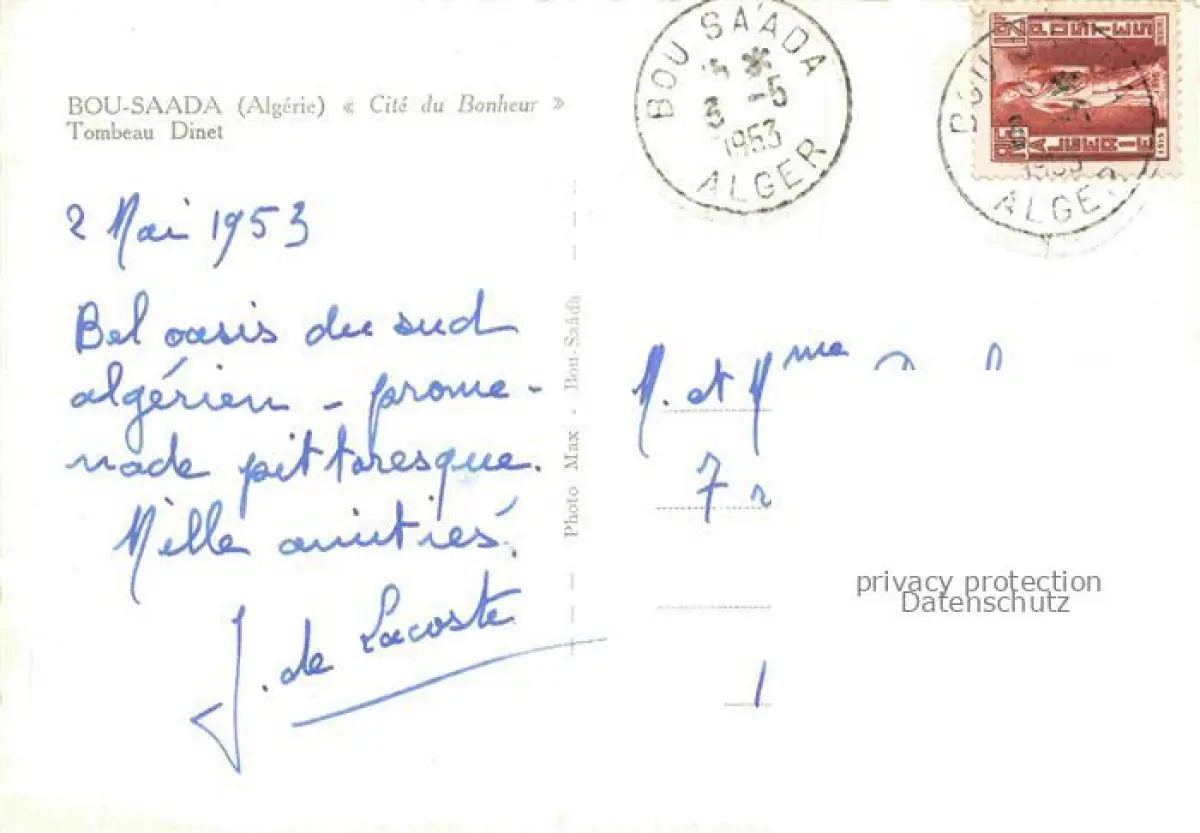 BOU-SAADA (Algérie) « Cité du Bonheur »
Tombeau Dinet
2 Mai 1953
Bel oasis du sud
algérien - prome-
nade pittoresque.
Mille amitiés.
J. de Lacoste
Photo Max - Bou-Saâda
BOU SAADA
3 -5
1953
ALGER
POSTES
ALGERIE
ALGER
M. et Mme
7 r
privacy protection
Datenschutz